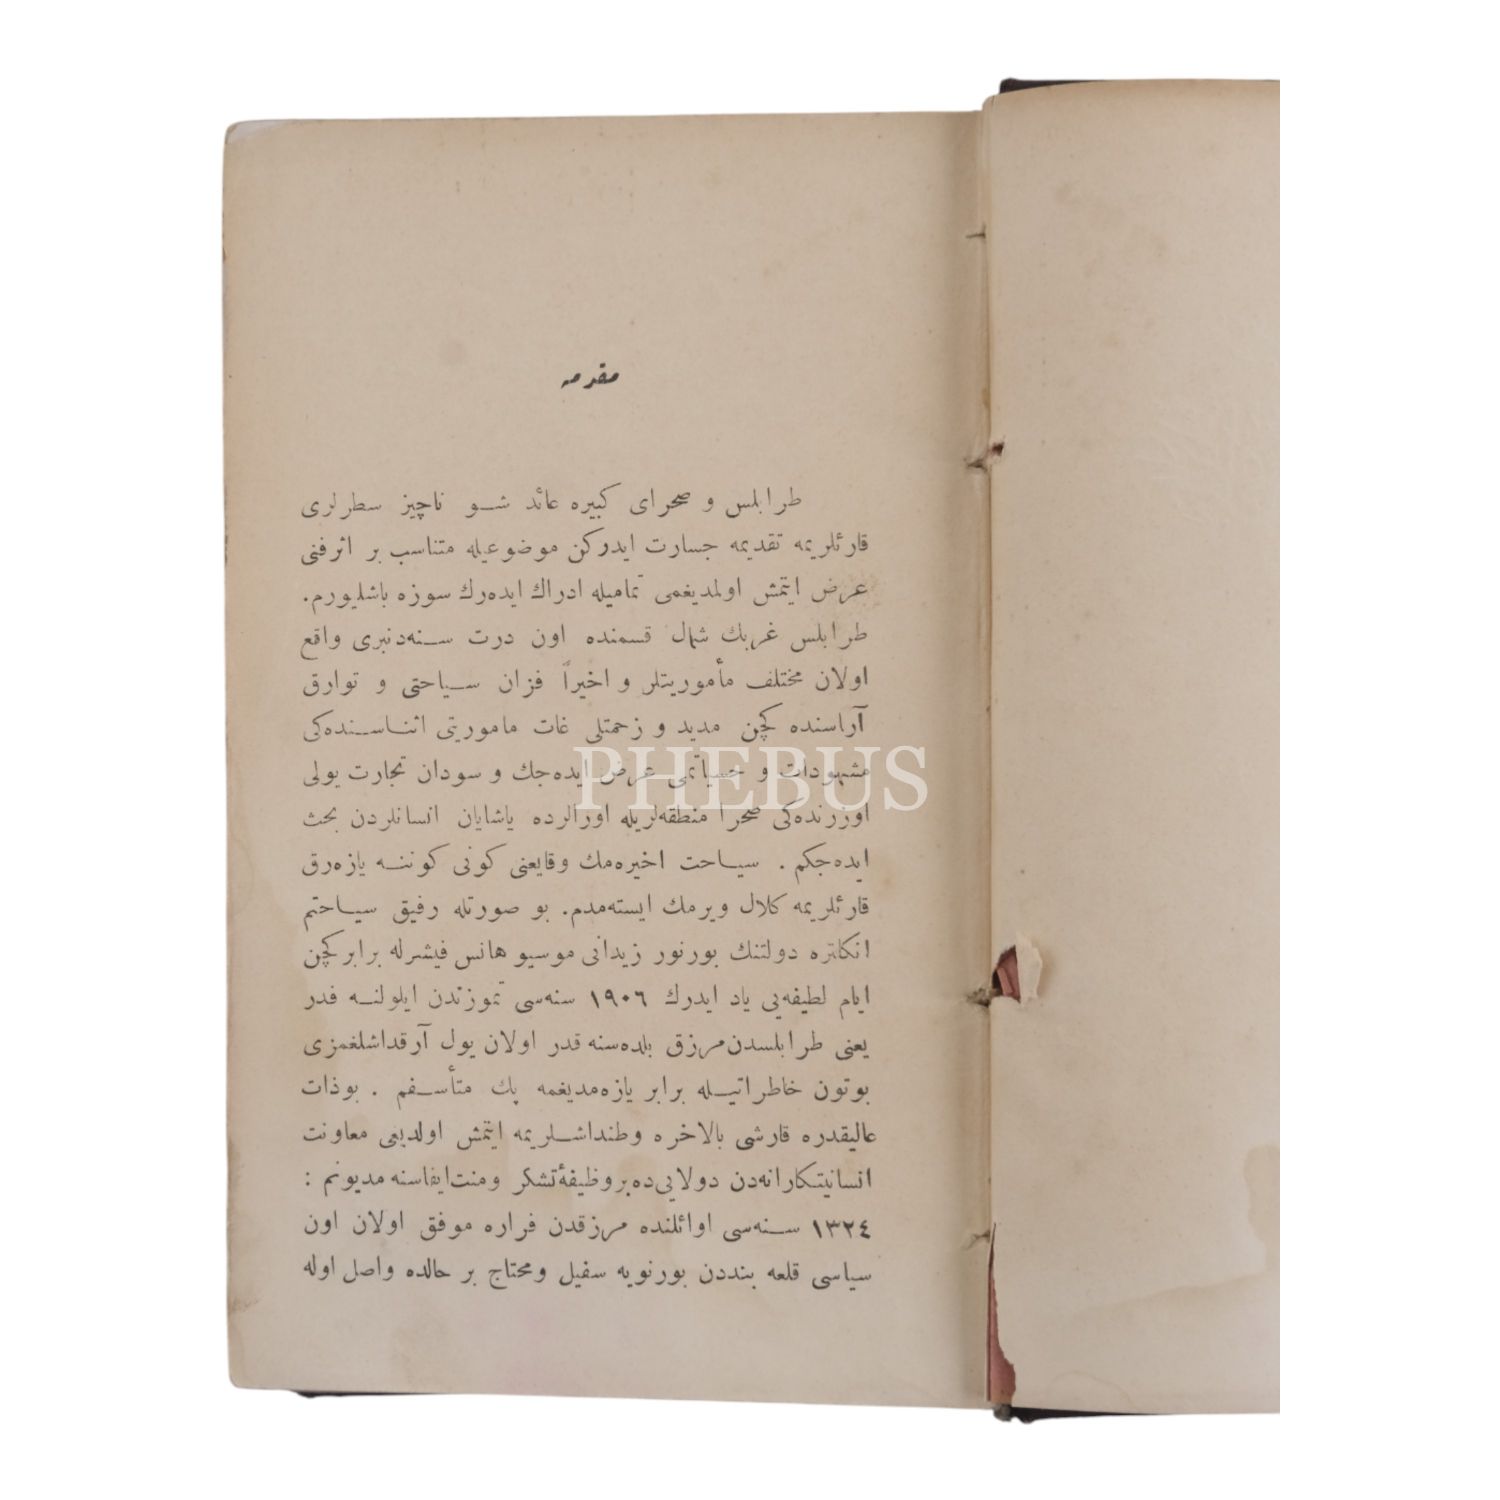 مقدمه
طرابلس و صحرای كبیره عائد شو ناچیز سطرلری
قارئلریمه تقدیمه جسارت ایدركن موضوعیله متناسب بر اثرفنی
عرض ایتمش اولمدیغمی تمامیله ادراك ایده‌رك سوزه باشلیورم.
طرابلس غربك شمال قسمنده اون درت سنه‌دنبری واقع
اولان مختلف مأموریتلر و اخیراً فزان سیاحتی و توارق
آراسنده كچن مدید و زحمتلی غات ماموریتی اثناسنده‌كی
مشهودات و حسیاتمی عرض ایده‌جك و سودان تجارت یولی
اوزرنده‌كی صحرا منطقه‌لریله اورالرده یاشایان انسانلردن بحث
ایده‌جكم . سیاحت اخیره‌مك وقایعنی كونی كوننه یازه‌رق
قارئلریمه كلال ویرمك ایسته‌مدم. بو صورتله رفیق سیاحتم
انكلتره دولتنك بورنور زیدانی موسیو هانس فیشرله برابر كچن
ایام لطیفه‌یی یاد ایدرك ١٩٠٦ سنه‌سی تموزندن ایلولنه قدر
یعنی طرابلسدن مرزق بلده‌سنه قدر اولان یول آرقداشلغمزی
بوتون خاطراتیله برابر یازه‌مدیغمه پك متأسفم . بوذات
عالیقدره قارشی بالاخره وطنداشلریمه ایتمش اولدیغی معاونت
انسانیتكارانه‌دن دولایی‌ده بروظیفهٔ تشكر ومنت ایفاسنه مدیونم :
١٣٢٤ سنه‌سی اوائلنده مرزقدن فراره موفق اولان اون
سیاسی قلعه بنددن بورنویه سفیل ومحتاج بر حالده واصل اوله
PHEBUS